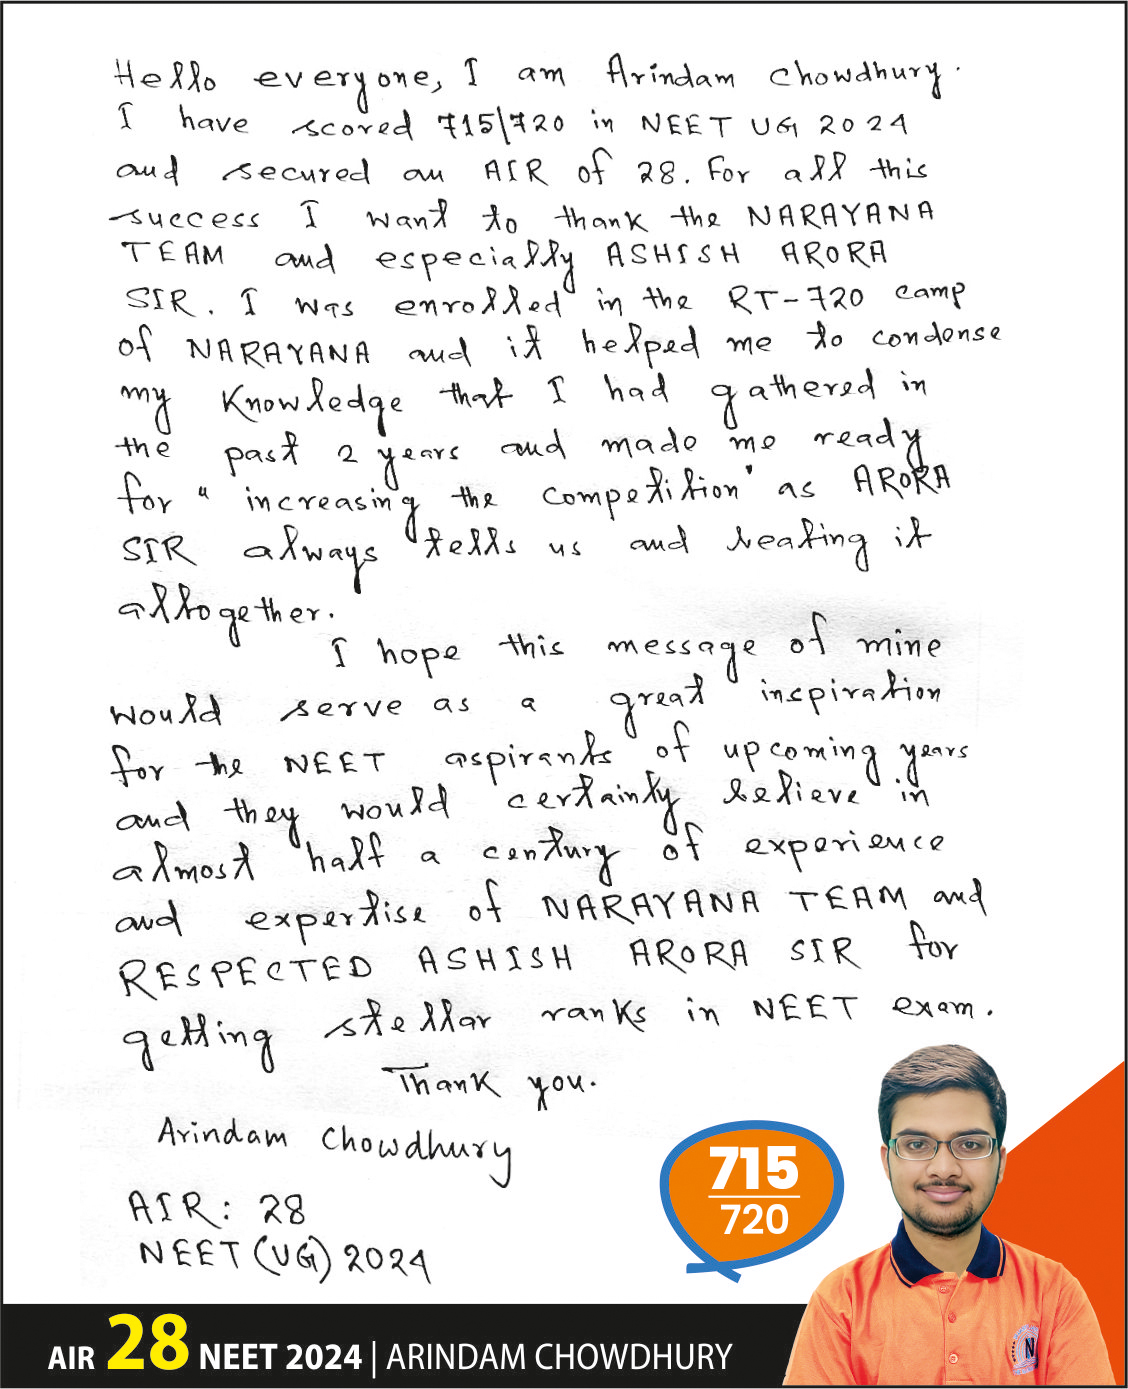 Hello everyone, I am Arindam Chowdhury.
I have scored 715/720 in NEET UG 2024
and secured an AIR of 28. For all this
success I want to thank the NARAYANA
TEAM and especially ASHISH ARORA
SIR. I was enrolled in the RT-720 camp
of NARAYANA and it helped me to condense
my knowledge that I had gathered in
the past 2 years and made me ready
for "increasing the competition" as ARORA
SIR always tells us and beating it
altogether.
I hope this message of mine
would serve as a great inspiration
for the NEET aspirants of upcoming years
and they would certainly believe in
almost half a century of experience
and expertise of NARAYANA TEAM and
RESPECTED ASHISH ARORA SIR for
getting stellar ranks in NEET exam.
Thank you.
Arindam Chowdhury
AIR: 28
NEET (UG) 2024
715
720
N
AIR 28 NEET 2024 | ARINDAM CHOWDHURY